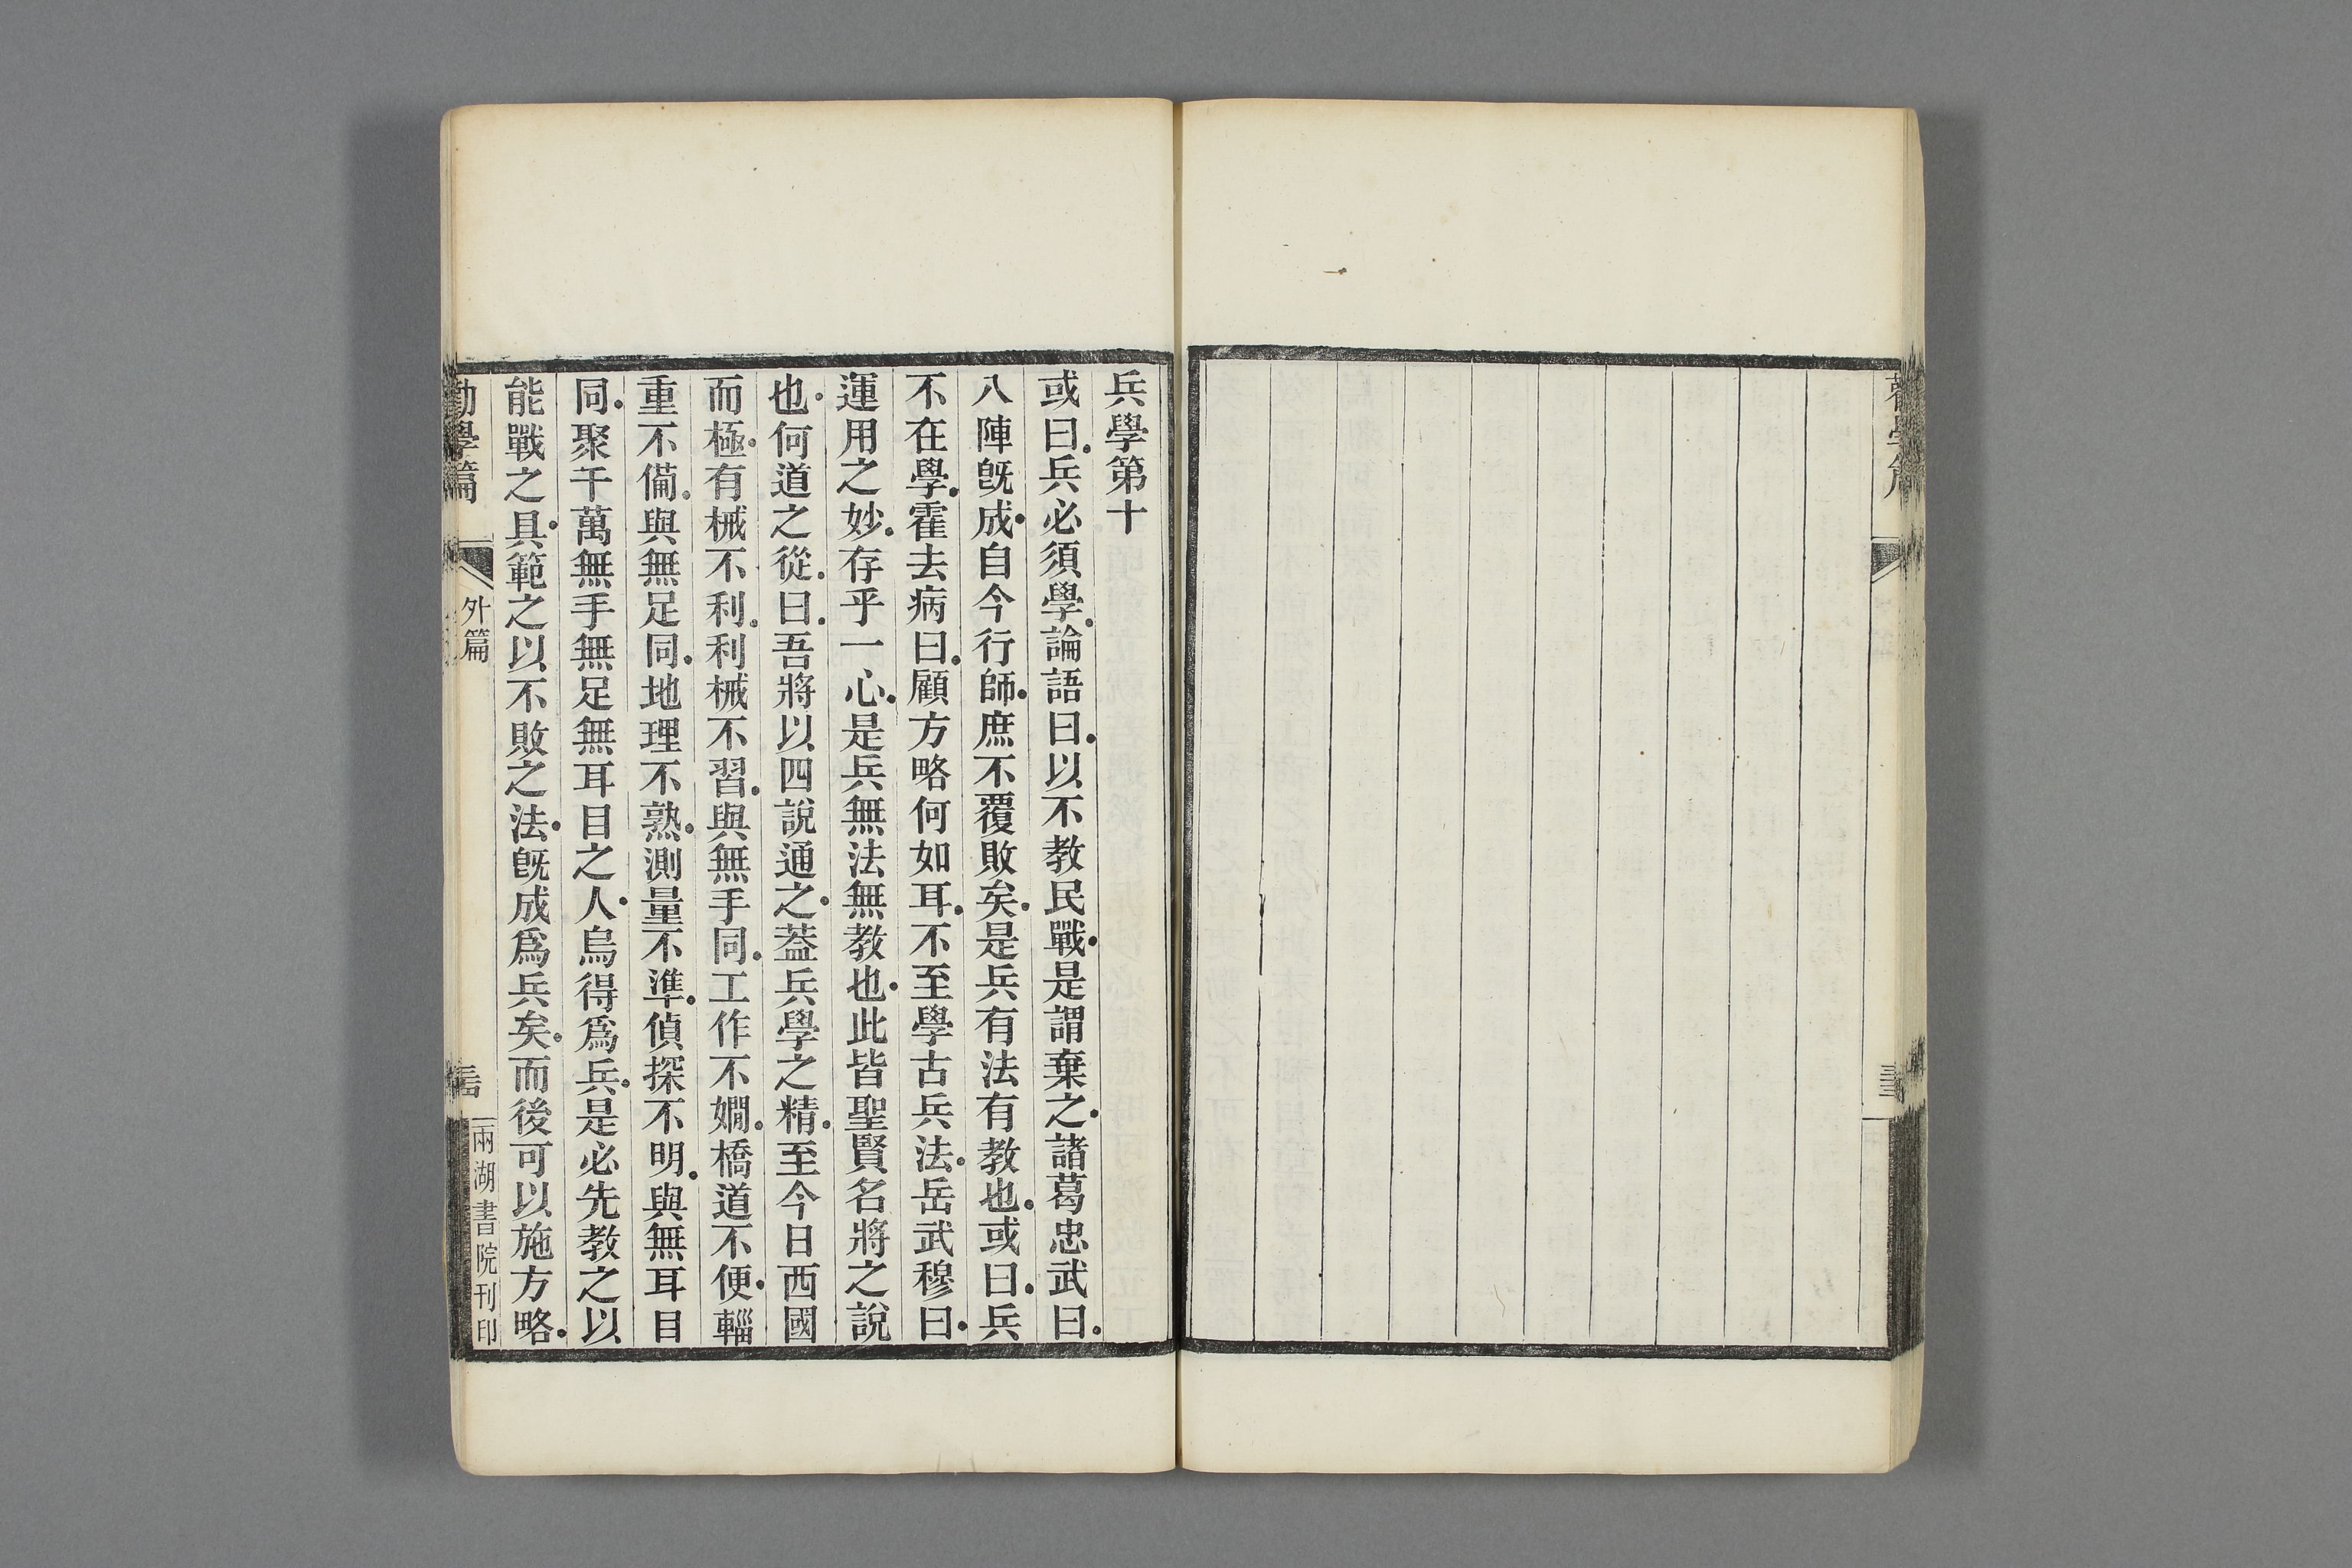 兵學第十
或曰兵必須學論語曰以不教民戰是謂棄之諸葛忠武曰
八陣旣成自今行師庶不覆敗矣是兵有法有教也或曰兵
不在學霍去病曰顧方略何如耳不至學古兵法岳武穆曰
運用之妙存乎一心是兵無法無教也此皆聖賢名將之說
也何道之從曰吾將以四說通之葢兵學之精至今日西國
而極有械不利利械不習與無手同工作不嫺橋道不便輜
重不備與無足同地理不熟測量不準偵探不明與無耳目
同聚千萬無手無足無耳目之人烏得爲兵是必先教之以
能戰之具範之以不敗之法旣成爲兵矣而後可以施方略
勸學篇
外篇
兩湖書院刊印